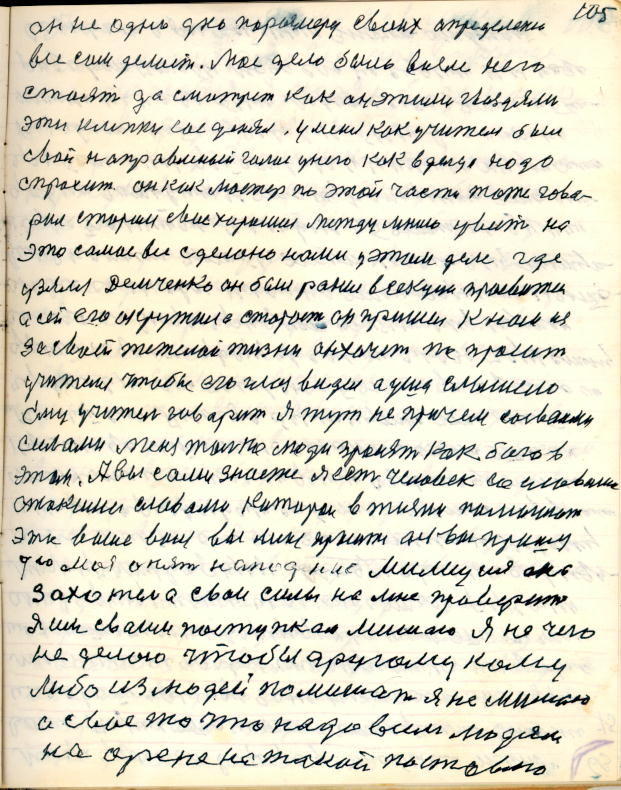 105
он не одно дно по размеру своих определено
все сам делает. Мое дело было возле него
стоят да смотрет как он этими гвоздями
эти клепки соеденял. У меня как учителя был
свой направленый голос у него как в деда надо
спросит он как мастер по этой части тоже гова-
рил старом свое хорошее между мною цвет на
это самое все сделано нами у этом деле где
взялся Демченко он был ранее в секции
а сей его окружила старост он пришел к нам из
за своей тежелой жизни он хочет по просит
учителя чтобы его глаз видел а уши слышело
ему учител говарит я тут не причем со своими
силами меня толко люди пранят как бога в
этом. А вы сами знаете я ест человек со словами
с такими словами которои в жизни помогают
эта ваше вам вы мине
что моя опят нападение милиция она
захотела свои силы на мне проверит
я им своим поступкам мишаю я не чего
не делаю чтобы другому кому
либо из людей помишат я не мишаю
а свое то что надо всем людям
на арена на такой поставлю